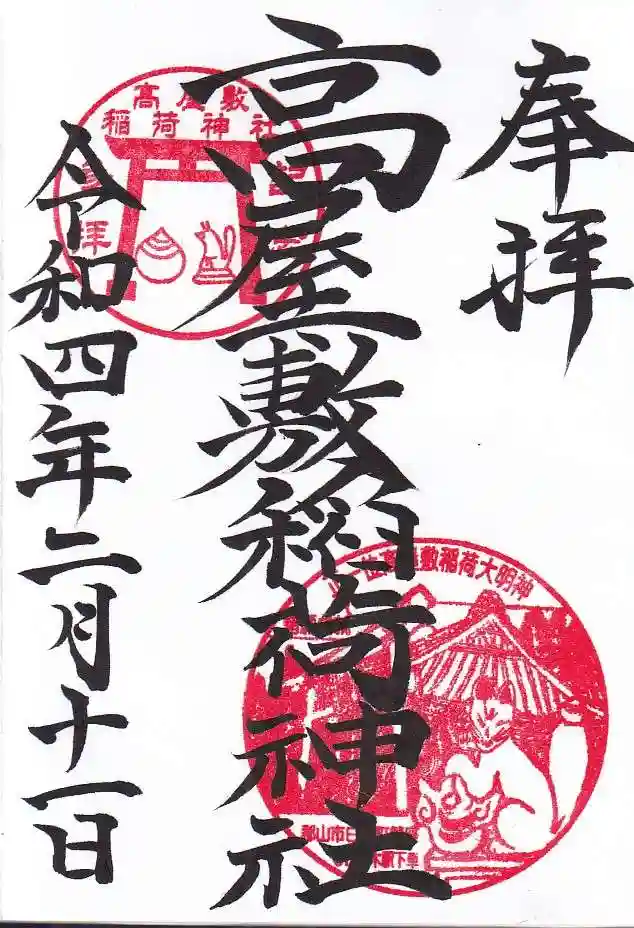 奉拝
高屋敷稲荷神社
令和四年二月十一日
高屋敷
稲荷神社
参拝
敷稲荷大明神
郡山市日
駅下車